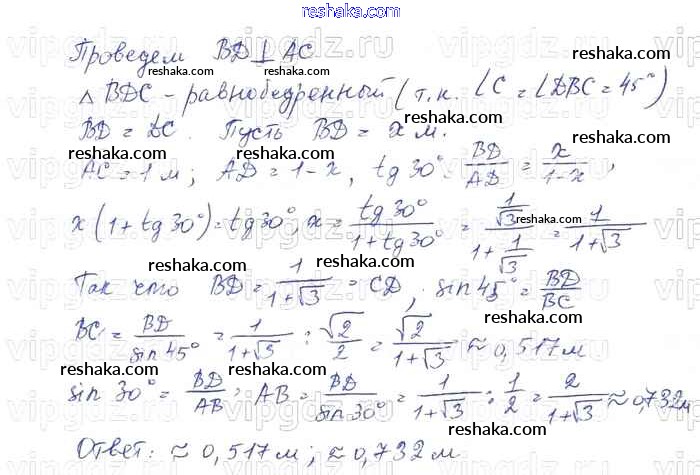 reshaka.com
Проведем BD ⊥ AC
reshaka.com reshaka.com reshaka.com
△ BDC - равнобедренный (т.к. ∠C = ∠DBC = 45°)
BD = DC. Пусть BD = x м.
reshaka.com reshaka.com reshaka.com
AC = 1 м; AD = 1-x, tg 30° = BD/AD = x/(1-x),
reshaka.com
x(1+tg 30°) = tg 30°, x = tg 30°/(1+tg 30°) = (1/√3)/(1+1/√3) = 1/(1+√3)
reshaka.com reshaka.com
reshaka.com reshaka.com
Так что BD = 1/(1+√3) = CD, sin 45° = BD/BC
reshaka.com
BC = BD/sin 45° = 1/(1+√3) : √2/2 = √2/(1+√3) ≈ 0,517 м
reshaka.com reshaka.com reshaka.com
sin 30° = BD/AB; AB = BD/sin 30° = 1/(1+√3) : 1/2 = 2/(1+√3) ≈ 0,732 м
reshaka.com reshaka.com reshaka.com
Ответ: ≈ 0,517 м; ≈ 0,732 м.